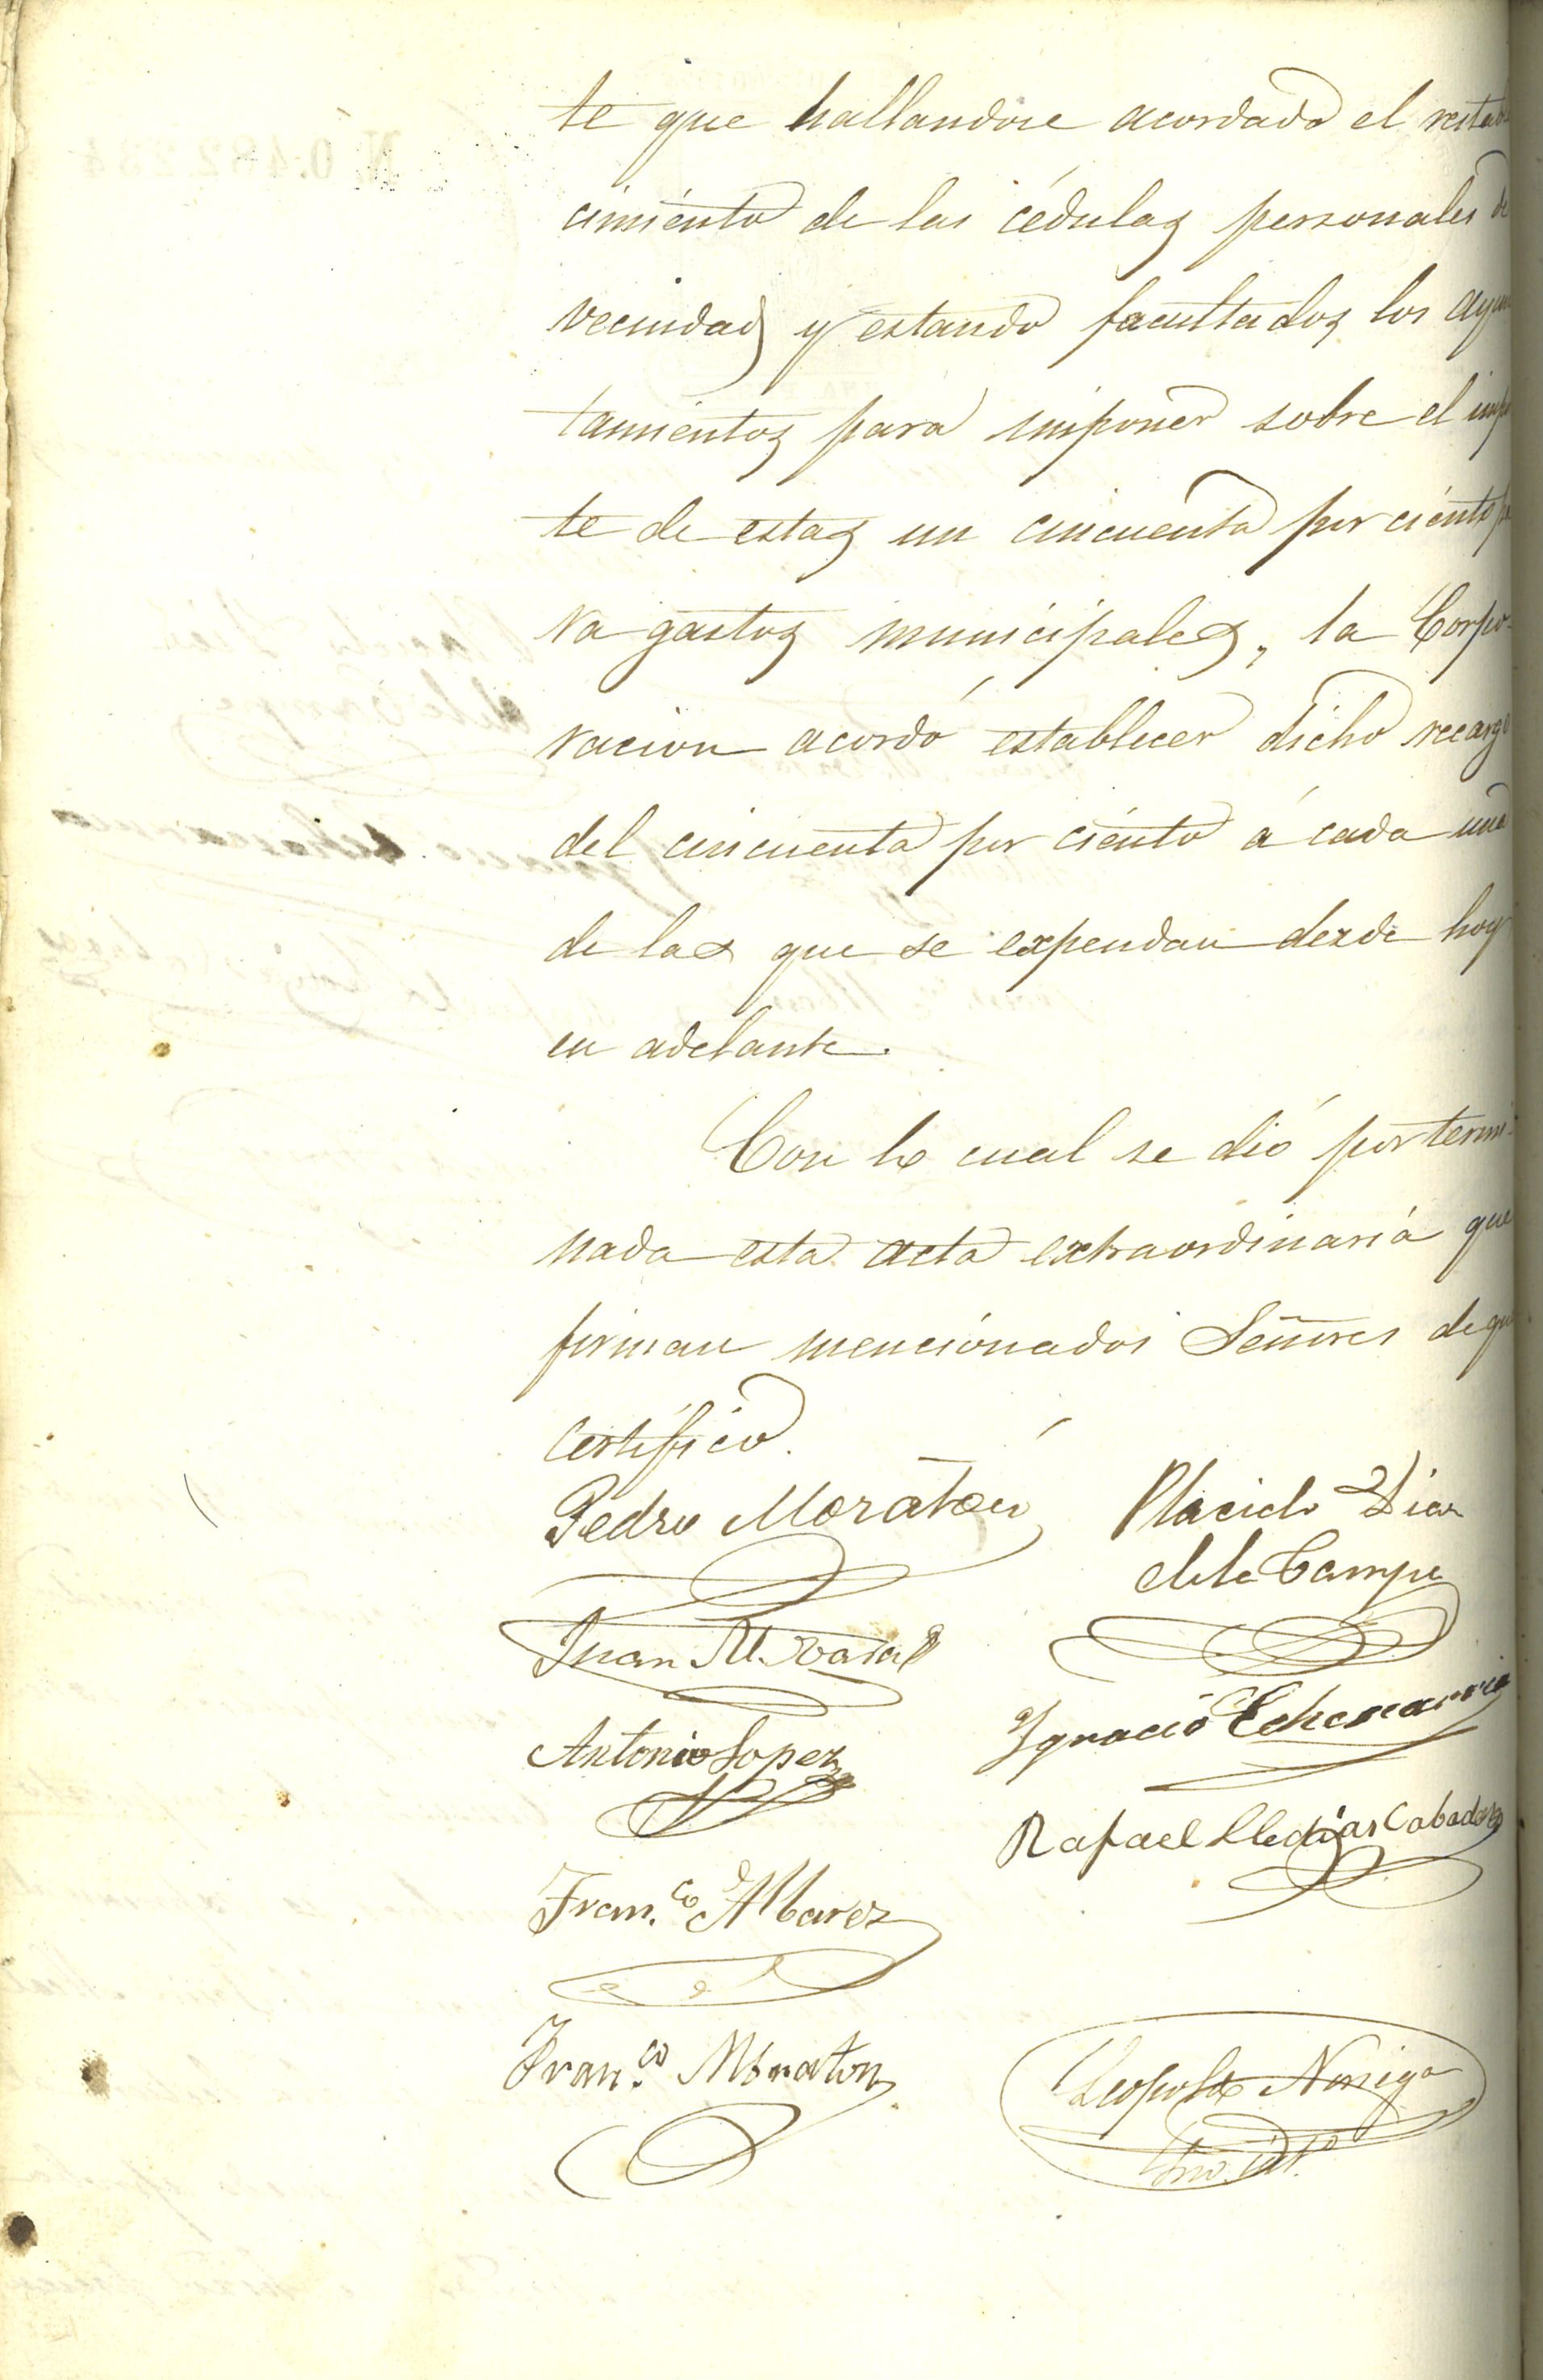 te que hallandose acordado el restab
cimiento de las cédulas personales de
vecindad y estando facultados los ayun
tamientos para imponer sobre el impo
te de estas un cincuenta por ciento pa
ra gastos municipales, la Corpo-
racion acordó establecer dicho recargo
del cincuenta por ciento á cada una
de las que se expendan desde hoy
en adelante.
Con lo cual se dió por termi-
nada esta acta extraordinaria que
firman mencionados Señores de que
certifico.
Pedro Moratón
Placido Diaz
de la Campa
Juan M.
Antonio Lopez
Ignacio Echevarria
Rafael Lledias Cabada
Fran.co Albarez
Fran.co Moraton
Leopoldo Noriega
Srio. int.o